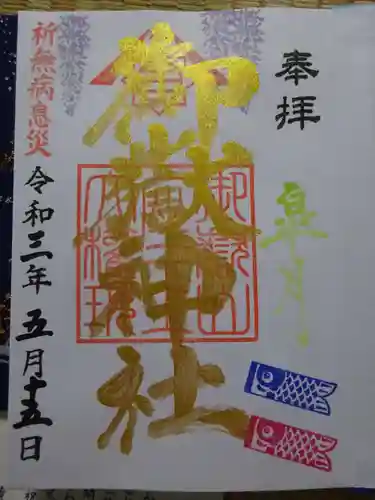 奉拝
皐月
御嶽神社
祈無病息災
令和三年五月十五日